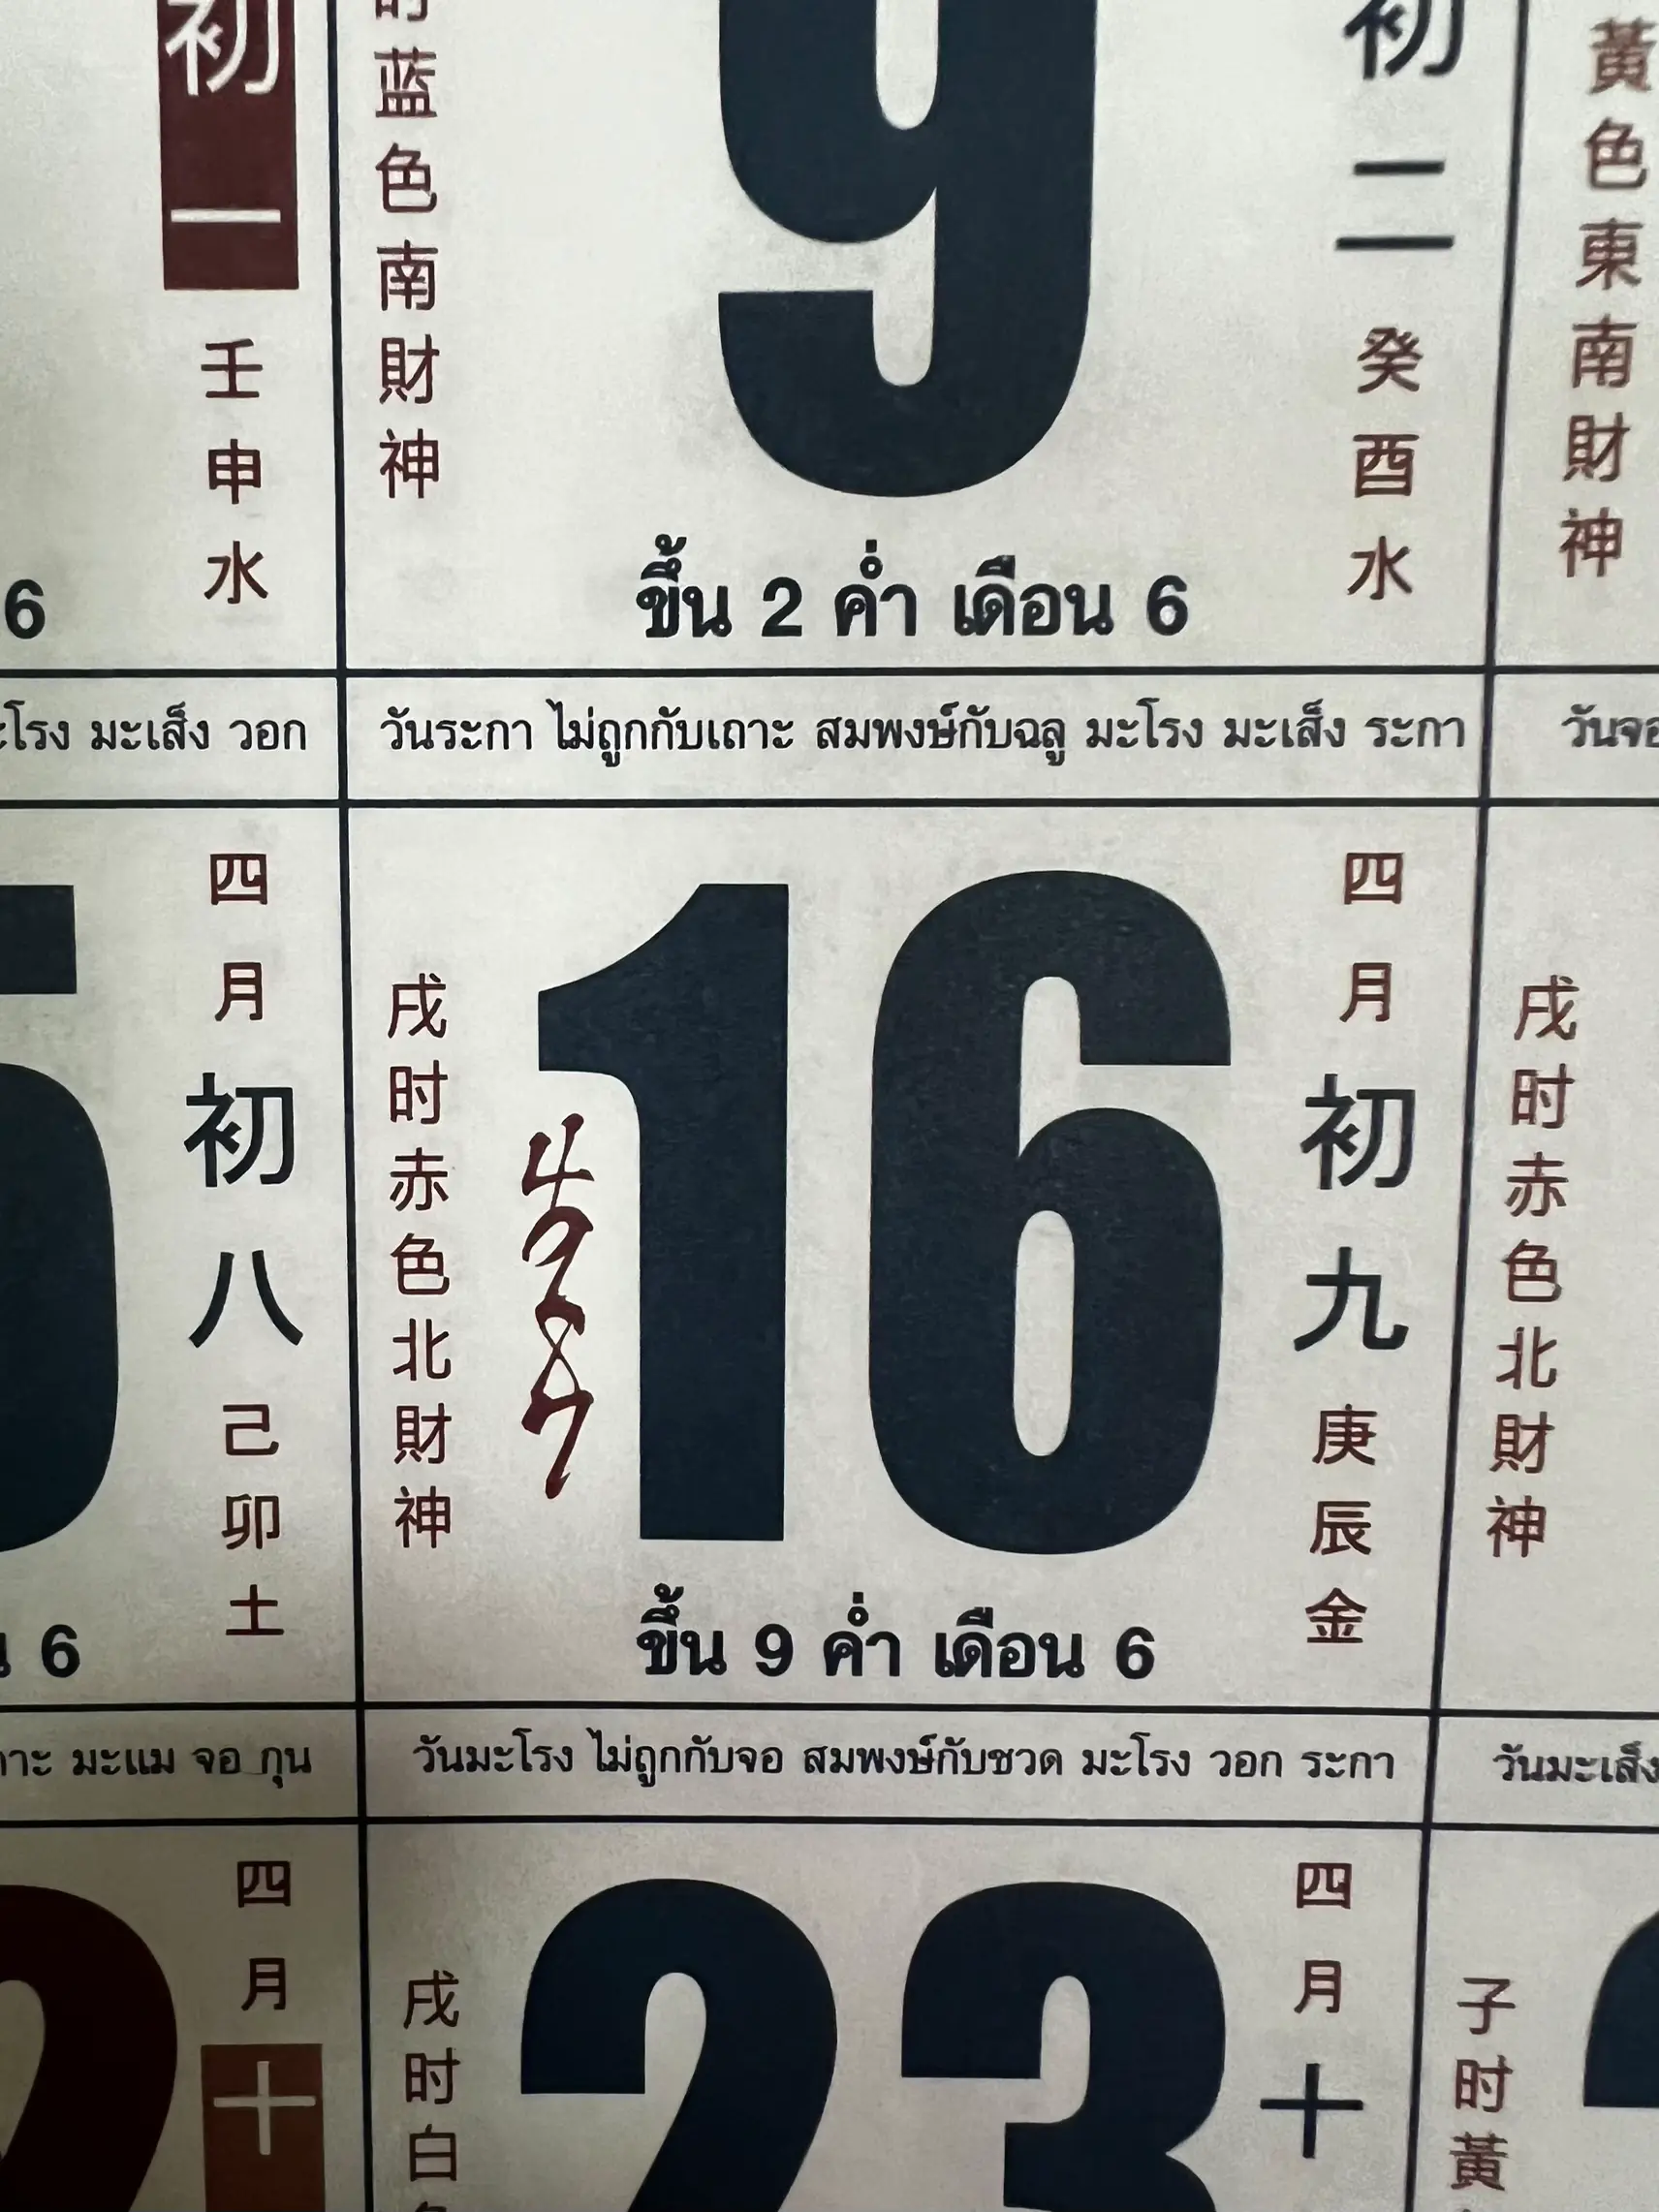 初一
壬申水
6
时蓝色南財神
9
初二
癸酉水
ขึ้น 2 ค่ำ เดือน 6
黃色東南財神
มะเส็ง วอก
วันระกา ไม่ถูกกับเถาะ สมพงษ์กับฉลู มะโรง มะเส็ง ระกา
四月
初八
己卯土
6
戌时赤色北財神
4987
16
四月
初九
庚辰金
ขึ้น 9 ค่ำ เดือน 6
戌时赤色北財神
มะแม จอ กุน
วันมะโรง ไม่ถูกกับจอ สมพงษ์กับชวด มะโรง วอก ระกา
วันมะเส็ง
四月
十
戌时白
23
四月
十
子时黃